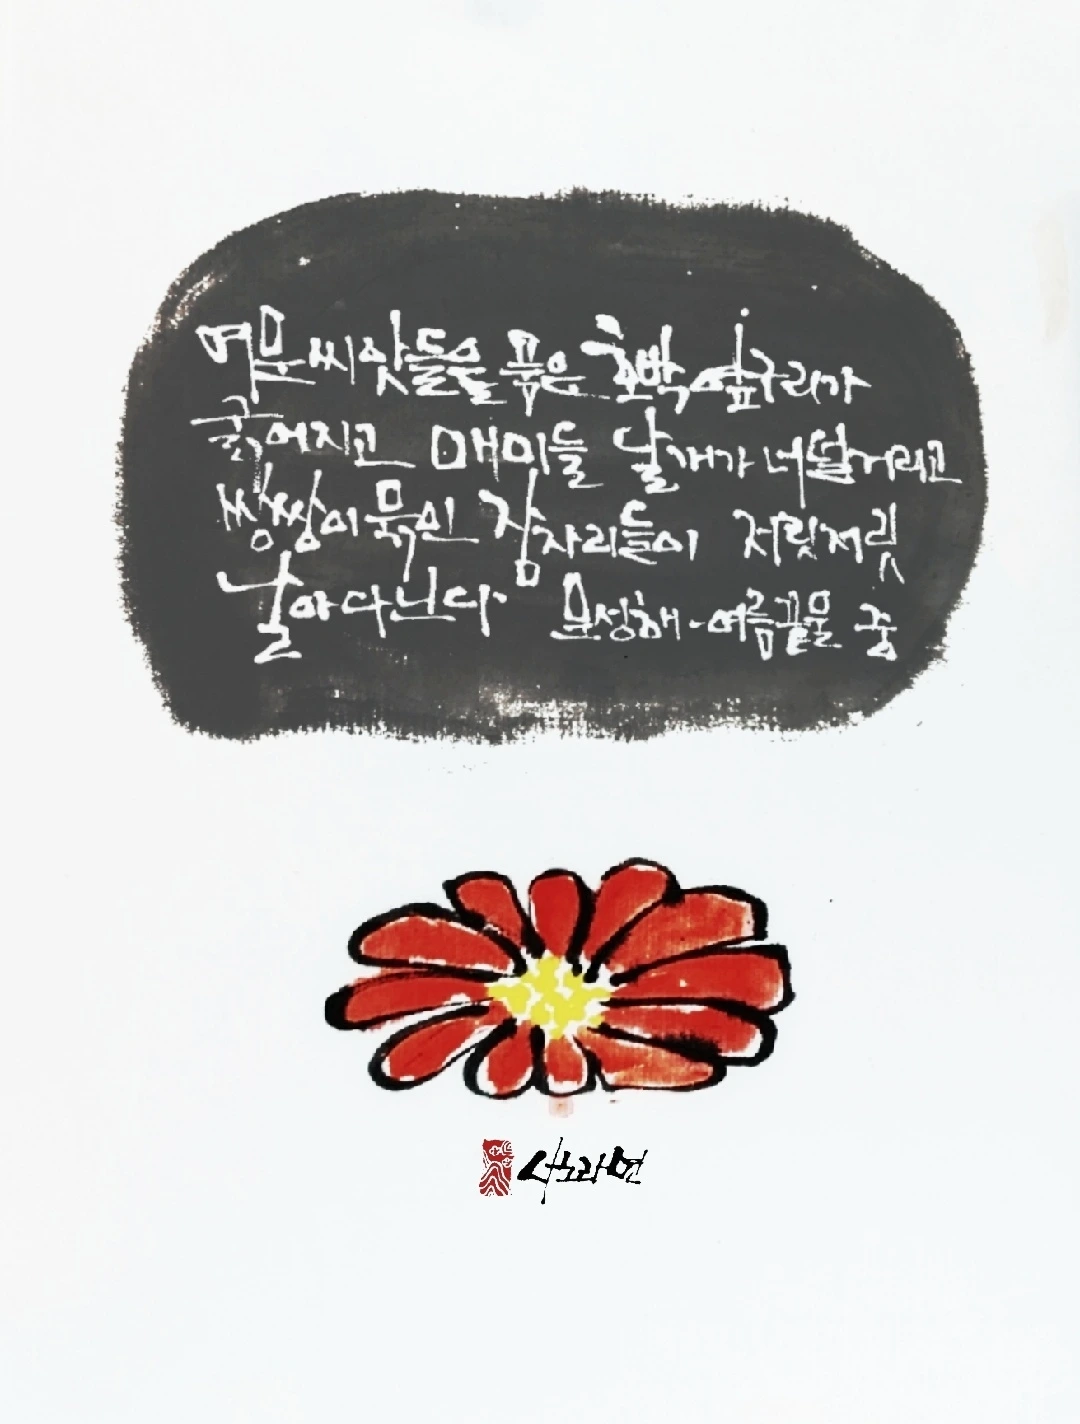 여문 씨앗들을 품은 호박 옆구리가
굵어지고 매미들 날개가 너덜거리고
쌍쌍이 묶인 잠자리들이 저릿저릿
날아다닌다 문성해-여름끝물 중